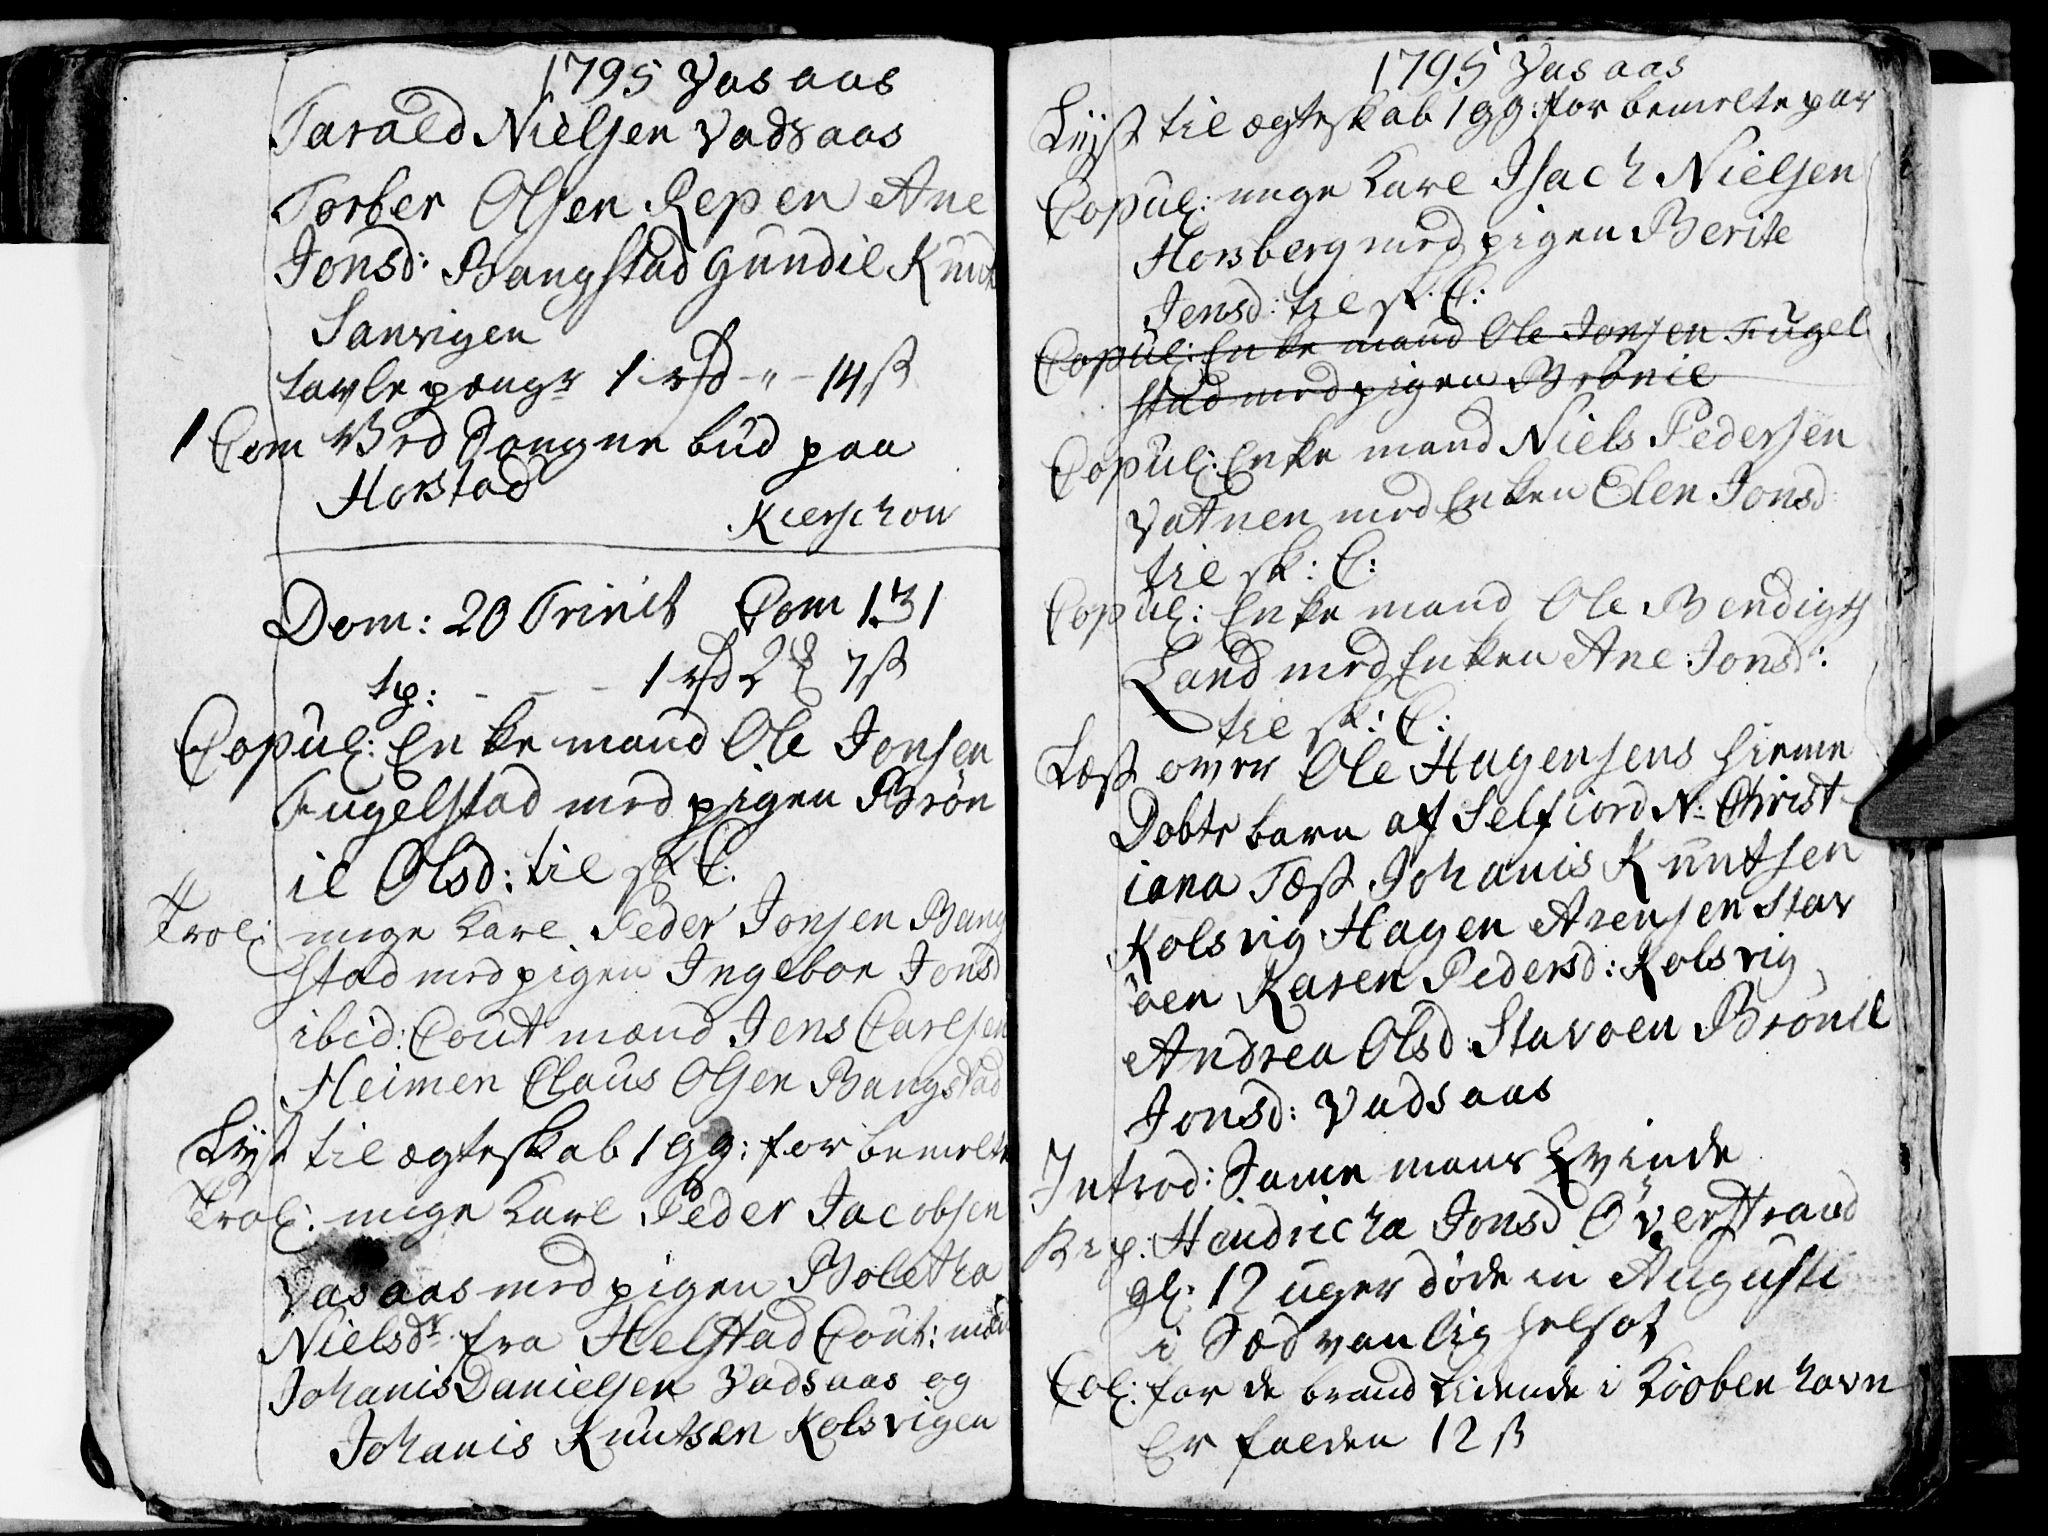 1795 Vasaas
Tarald Nielsen Vadsaas
Torber Olsen Repen Ane
Jonsd: Bangstad Gundil Knud
Sanvigen
tavle pængr 1 rd - " - 14 ß
1 Com Ved Songne bud paa
Horstad
Kierschou
Dom: 20 Trinit Com 131
tp: - - - 1 rd 2 7 ß
Copul: Enke mand Ole Jonsen
Fugelstad med pigen Brøn
il Olsd: til sk: C:
Trol: unge Karl Peder Jonsen Bang
stad med pigen Ingebor Jonsd
ibid: Cout mænd Jens Carlsen
Heimen Claus Olsen Bangstad
Lyst til ægteskab 1 gg: for bemelte
Trol: unge Karl Peder Jacobsen
Vasaas med pigen Boletha
Nielsdr fra Helstad Cout: mænd
Johanis Danielsen Vadsaas og
Johanis Knutsen Kolsvigen
1795 Vasaas
Lyst til ægteskab 1 gg: for bemelte par
Copul: unge Karl Isach Nielsen
Horsberg med pigen Berite
Jensd: til sk: C:
Copul: Enke mand Ole Jonsen Fugel
stad med pigen Brønil
Copul: Enke mand Niels Pedersen
Vatnen med Enken Elen Jonsd:
til sk: C:
Copul: Enke mand Ole Bendigts
Land med Enken Ane Jonsd:
til sk: C:
Læst over Ole Hagensens hieme
Døbte barn af Selfiord N: Christ
iana Tæst Johanis Knutsen
Kolsvig Hagen Arensen Stav
øen Karen Pedersd: Kolsvig
Andrea Olsd: Stavøen Brønil
Jonsd: Vadsaas
Introd: Same mans Qvinde
Bep: Hendricha Jonsd Øverstrand
gl: 12 uger døde in Augusti
i Sædvanlig helsot
Col: for de brand lidende i Kiøbenhavn
Er falden 12 ß